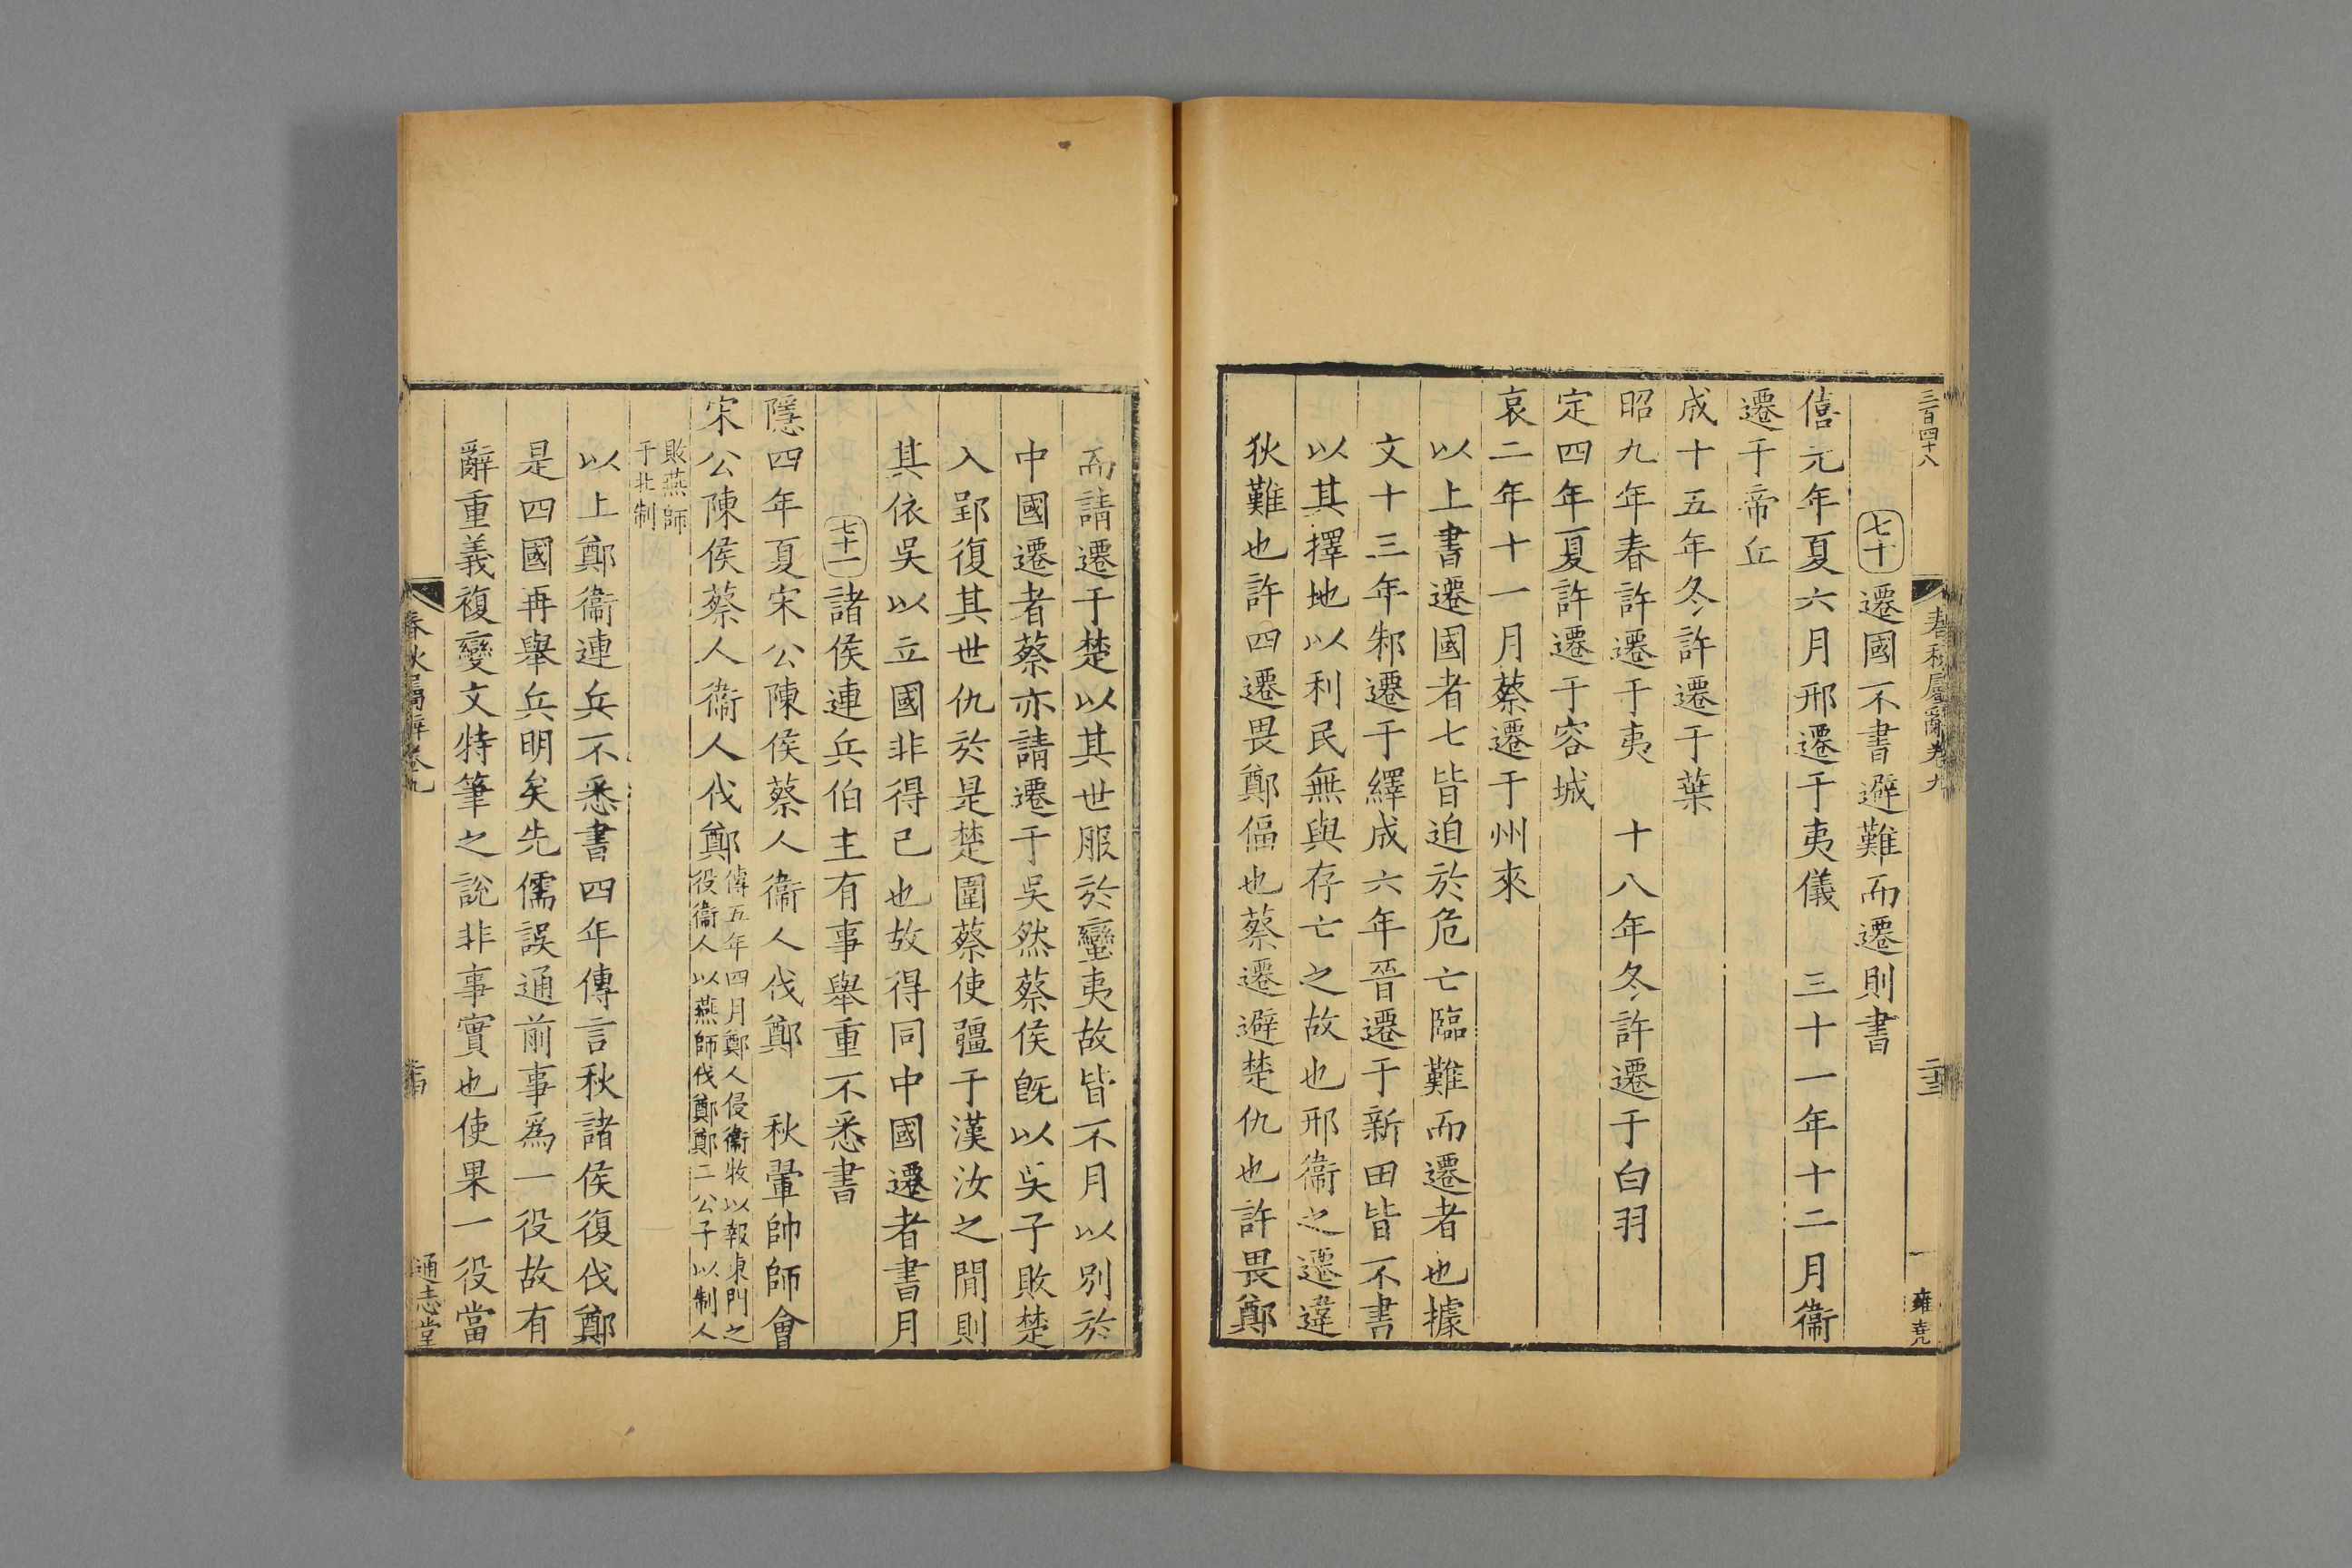 三百四十八
春秋屬辭卷九
二十三
一
雍堯
七十 遷國不書避難而遷則書
僖元年夏六月邢遷于夷儀 三十一年十二月衞
遷于帝丘
成十五年冬許遷于葉
昭九年春許遷于夷 十八年冬許遷于白羽
定四年夏許遷于容城
哀二年十一月蔡遷于州來
以上書遷國者七皆迫於危亡臨難而遷者也據
文十三年邾遷于繹成六年晉遷于新田皆不書
以其擇地以利民無與存亡之故也邢衞之遷違
狄難也許四遷畏鄭偪也蔡遷避楚仇也許畏鄭
而請遷于楚以其世服於蠻夷故皆不月以別於
中國遷者蔡亦請遷于吳然蔡侯旣以吳子敗楚
入郢復其世仇於是楚圍蔡使疆于漢汝之閒則
其依吳以立國非得已也故得同中國遷者書月
七十一 諸侯連兵伯主有事舉重不悉書
隱四年夏宋公陳侯蔡人衞人伐鄭 秋翬帥師會
宋公陳侯蔡人衞人伐鄭傳五年四月鄭人侵衞牧以報東門之
役衞人以燕師伐鄭鄭二公子以制人
敗燕師
于北制
以上鄭衞連兵不悉書四年傳言秋諸侯復伐鄭
是四國再舉兵明矣先儒誤通前事爲一役故有
辭重義複變文特筆之說非事實也使果一役當
春秋屬辭卷九
通志堂